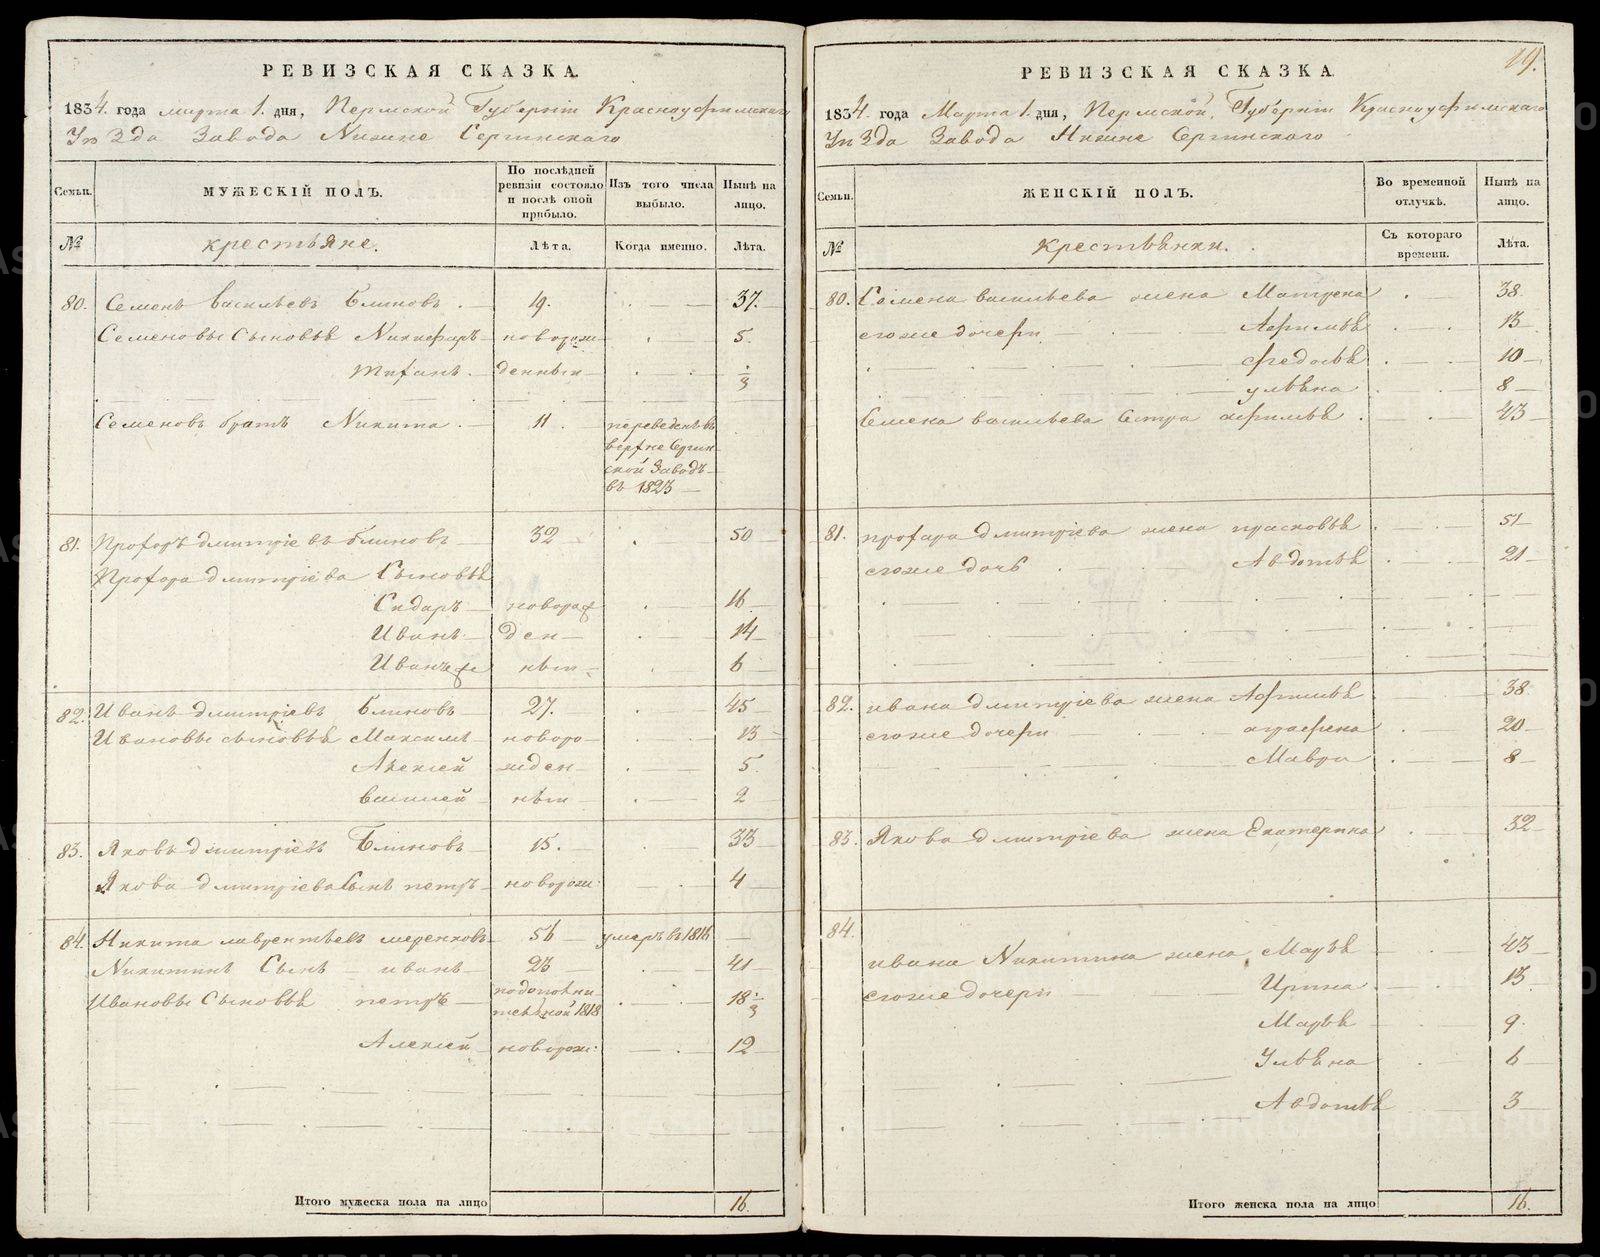 РЕВИЗСКАЯ СКАЗКА.
1834. года марта 1. дня, Пермской Губернiи Красноуфимскаго
Уѣзда Завода Нижне Сергинскаго
Семьи. МУЖЕСКIЙ ПОЛЪ. По послѣдней ревизiи состояло и послѣ оной прибыло. Изъ того числа выбыло. Нынѣ на лицо.
№ крестьяне. Лѣта. Когда именно. Лѣта.
80. Семенъ васильевъ Блиновъ. 19. 37.
Семеновы Сыновья Никифаръ новорож 5.
Трифанъ. денныи
Семеновъ братъ Никита. 11. переведенъ въ
верхне Сергин
ской Заводъ
въ 1823
81. Прохоръ дмитрiевъ блиновъ 32 50
Прохора дмитрiева Сыновья
Сидаръ новорож 16
Иванъ ден 14
Иванъ же ныи 6
82. Иванъ дмитрiевъ Блиновъ 27. 45
Ивановы сыновья Максимъ новоро 13
Алексей жден 5.
василей ныи 2
83. Яковъ дмитрiевъ Блиновъ 15. 33
Якова дмитрiева Сынъ петръ новорож: 4
84. Никита лаврентьевъ меренковъ 56 умеръ въ 1816
Никитинъ Сынъ иванъ 23 41
Ивановы Сыновья петръ подополни
тельной 1818 18
Алексей новорож: 12
Итого мужеска пола на лицо 16.
19.
РЕВИЗСКАЯ СКАЗКА.
1834. года Марта 1. дня, Пермской, Губернiи Красноуфимскаго
Уѣзда Завода Нижне Сергинскаго
Семьи. ЖЕНСКIЙ ПОЛЪ. Во временной отлучкѣ. Нынѣ на лицо.
№ крестьянки. Съ котораго времени. Лѣта.
80. Семена васильева жена Матрена 38.
егоже дочери Афимья 13
федосья 10
ульяна 8
Семена васильева Сестра афимья. 23
81. прохара дмитрiева жена прасковья 51
егоже дочь Авдотья 21
82. ивана дмитрiева жена Афимья 38.
егоже дочери аграфена 20
Мавра 8
83. Якова дмитрiева жена Екатерина 32
84.
ивана Никитина жена Марья 43
егоже дочери Ирина. 13.
Марья 9.
Ульяна 6
Авдотья 3
Итого женска пола на лицо 16.